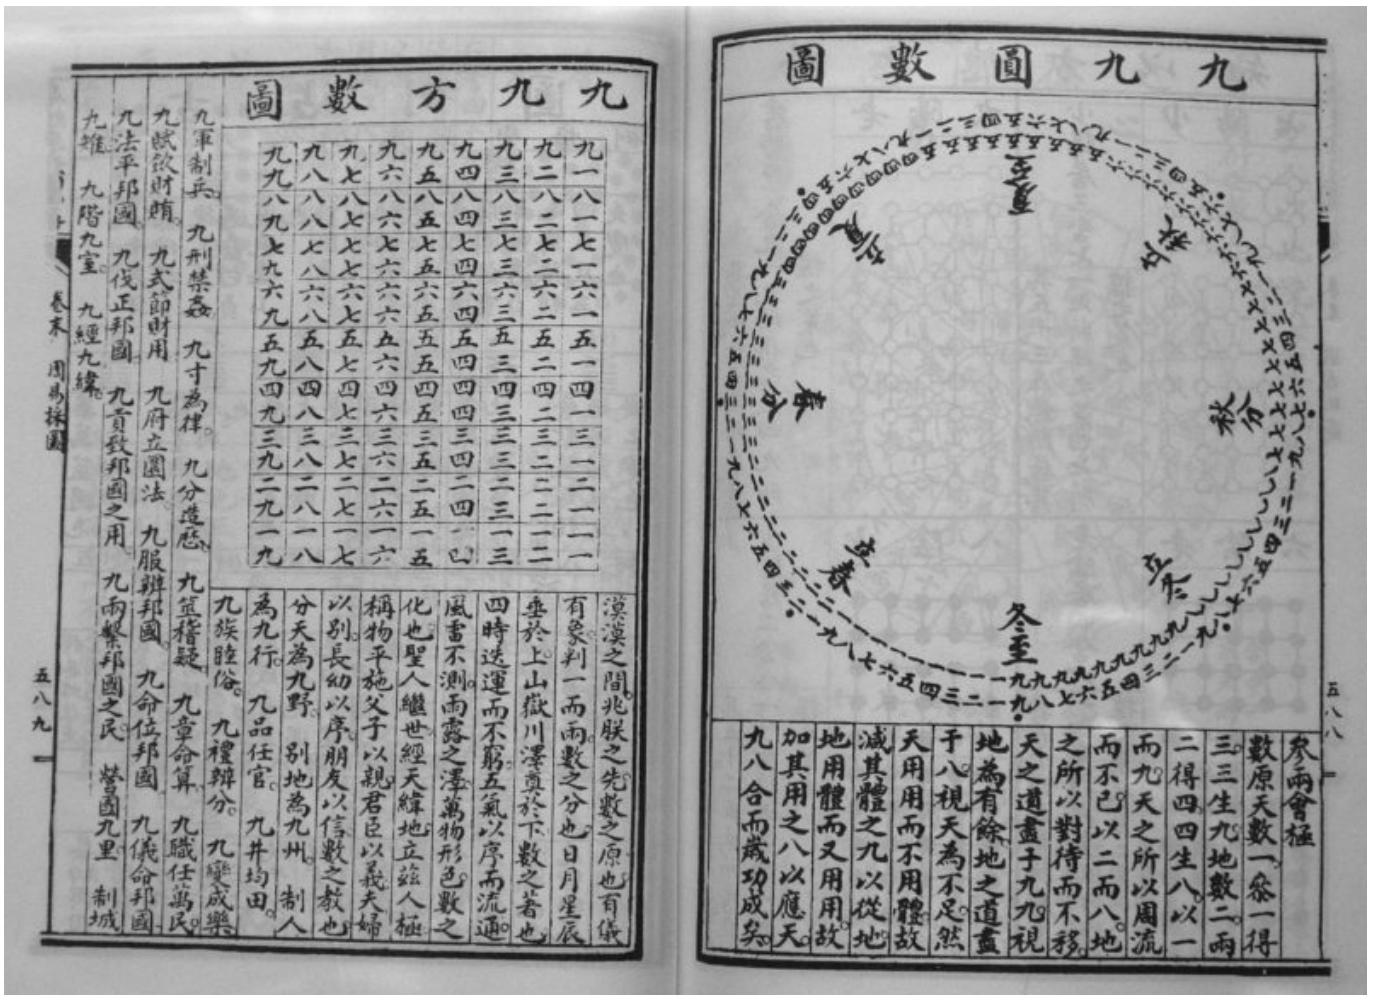 九九圓數圖
夏至
立秋
秋分
立冬
冬至
立春
春分
立夏
參兩會極
數原天數一。叅一得
三。三生九。地數二。兩
二得四。四生八。以一
而九。天之所以周流
而不已。以二而八。地
之所以對待而不移。
天之道盡于九。九視
地為有餘。地之道盡
于八。八視天為不足。然
天用用而不用體。故
減其體之九以從地。
地用體而又用用。故
加其用之八以應天。
九八合而歲功成矣。
五八八
九九方數圖
九一八一七一六一五一四一三一二一一一
九二八二七二六二五二四二三二二二一二
九三八三七三六三五三四三三三二三一三
九四八四七四六四五四四四三四二四一四
九五八五七五六五五五四五三五二五一五
九六八六七六六六五六四六三六二六一六
九七八七七七六七五七四七三七二七一七
九八八八七八六八五八四八三八二八一八
九九八九七九六九五九四九三九二九一九
漠漠之間。兆朕之先。數之原也。有儀
有象。判一而兩。數之分也。日月星辰
垂於上。山嶽川澤奠於下。數之著也。
四時迭運而不窮。五氣以序而流通。
風雷不測。雨露之澤。萬物形色。數之
化也。聖人繼世。經天緯地。立茲人極。
稱物平施。父子以親。君臣以義。夫婦
以別。長幼以序。朋友以信。數之教也。
分天為九野。別地為九州。制人
為九行。九品任官。九井均田。
九族睦俗。九禮辨分。九變成樂
九軍制兵。九刑禁姦。九寸為律。九分造曆。九筮稽疑。九章命算。九職任萬民。
九賦斂財賄。九式節財用。九府立圜法。九服辨邦國。九命位邦國。九儀命邦國。
九法平邦國。九伐正邦國。九貢致邦國之用。九兩繫邦國之民。營國九里。制城
九雉。九階九室。九經九緯。
卷末 周易採圖
五八九